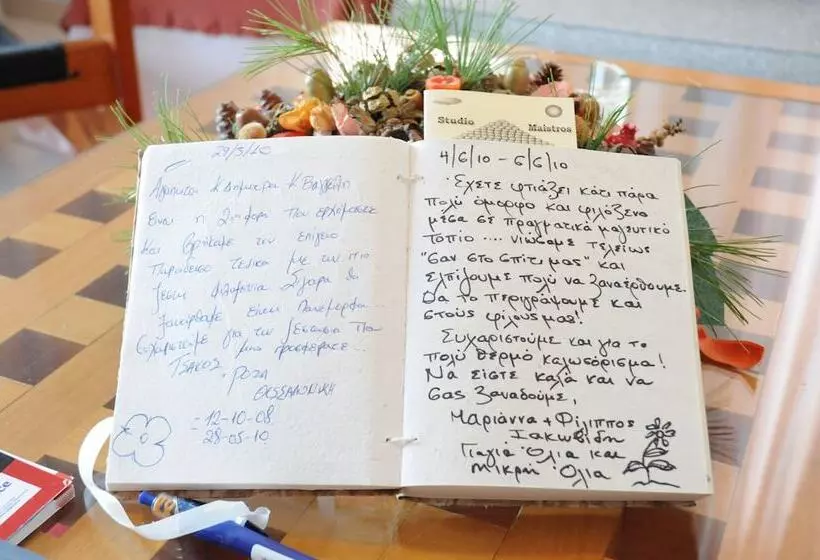 Studio
Maistros
29/5/10
Αγαπητοί κ Δήμητρα κ Βαγγέλη
Είναι η 2η φορά που ερχόμαστε
και βρήκαμε τον επίγειο
παράδεισο τελικά με την πιο
ζεστή φιλοξενία Σίγουρα θα
ξανάρθουμε είναι πανέμορφα...
Ευχαριστούμε για την ζεστασιά που
μας προσφέρατε...
ΤΣΑΚΟΣ
ΡΟΖΑ
ΘΕΣΣΑΛΟΝΙΚΗ
= 12-10-08
28-05-10
4/6/10 - 6/6/10
Έχετε φτιάξει κάτι πάρα
πολύ όμορφο και φιλόξενο
μέσα σε πραγματικά μαγευτικό
τοπίο .... νιώσαμε τελείως
"σαν στο σπίτι μας" και
ελπίζουμε πολύ να ξαναέρθουμε.
Θα το περιγράψουμε και
στους φίλους μας!
Ευχαριστούμε και για το
πολύ θερμό καλωσόρισμα!
Να είστε καλά και να
σας ξαναδούμε,
Μαριάννα + Φίλιππος
Ιακωβίδη
Γιαγιά Όλια και
μικρή Όλια